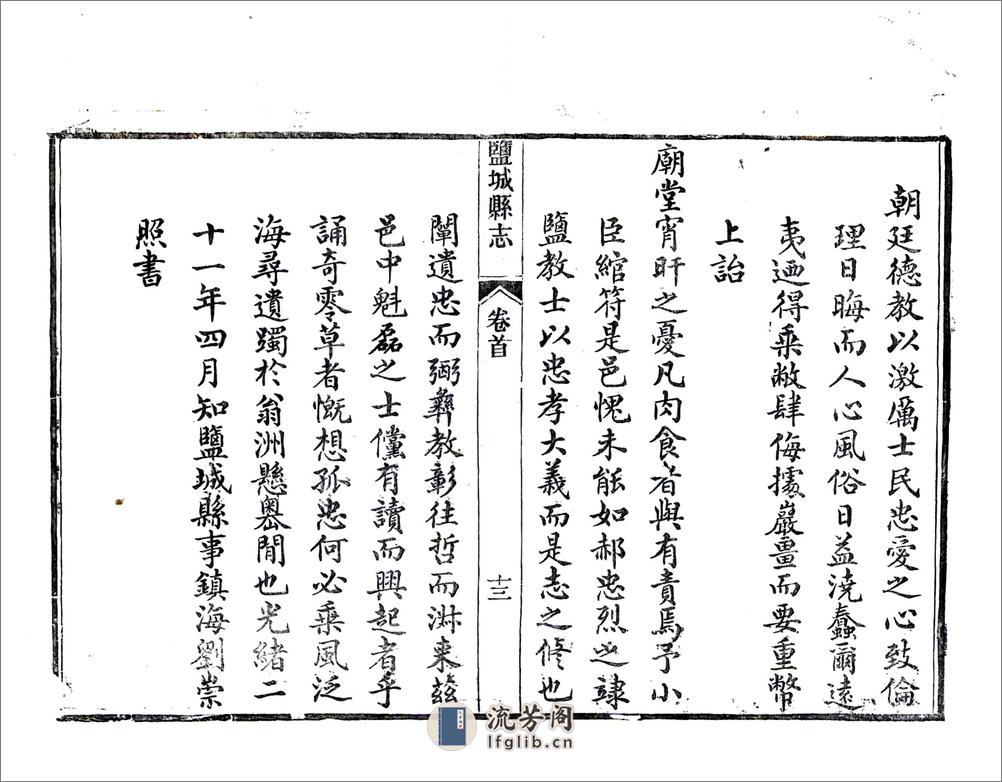 朝廷德教以激厲士民忠愛之心致倫
理日晦而人心風俗日益澆蠢爾遠
夷迺得乘敝肆侮據巖畺而要重幣
上詒
廟堂宵旰之憂凡肉食者與有責焉予小
臣綰符是邑愧未能如郝忠烈之隷
鹽教士以忠孝大義而是志之修也
鹽城縣志
卷首
十三
闡遺忠而弼彝教彰往哲而淑來兹
邑中魁磊之士儻有讀而興起者乎
誦奇零草者慨想孤忠何必乘風泛
海尋遺躅於翁洲懸嶴閒也光緒二
十一年四月知鹽城縣事鎮海劉崇
照書
流芳阁
lfglib.cn